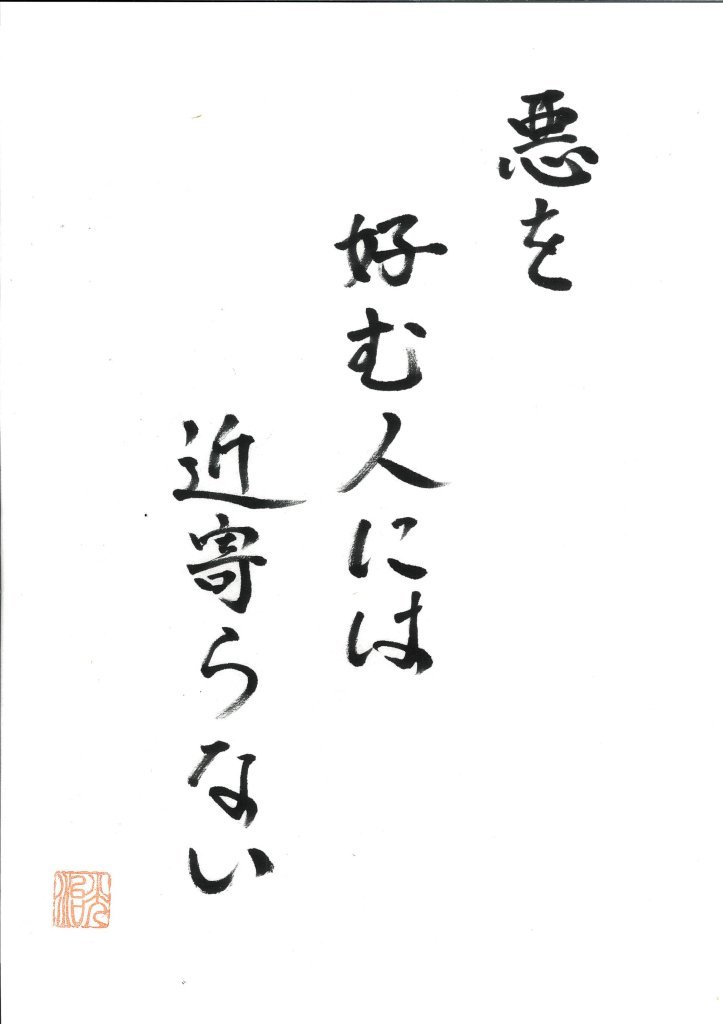 悪を
好む人には
近寄らない